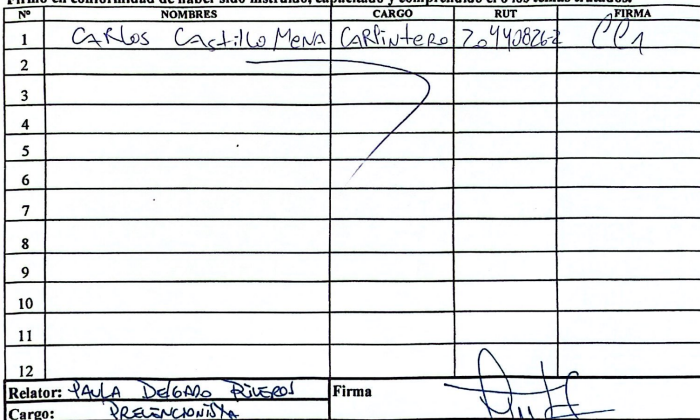 Firmo en conformidad de haber sido instruido, capacitado y comprendido el o los temas tratados.
Nº NOMBRES CARGO RUT FIRMA
1 CARlos CAstillo MeNA CARPintero 20440826-2
2
3
4
5
6
7
8
9
10
11
12
Relator: PAULA DELGADO RIVEROS Firma
Cargo: PREVENCIONISTA